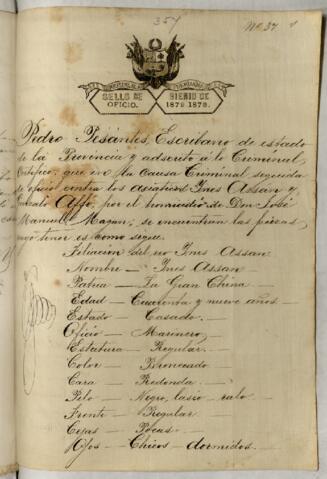 357
Nº 37
SELLO DE OFICIO.
BIENIO DE 1872 1873.
Pedro Pesántes, Escribano de estado
de la Provincia y adscrito á lo Criminal,
Certifico: que en la Causa Criminal seguida
de oficio contra los asiáticos Ines Assan y
Affó, por el homicidio de Don José
Manuel, se encuentran las piezas
cuyo tenor es como sigue.
Filiacion del reo Ines Assan
Nombre — Ines Assan
Patria — La Gran China
Edad — Cuarenta y nueve años —
Estado — Casado.
Oficio — Marinero
Estatura — Regular.
Color — Bronceado
Cara — Redonda.
Pelo — Negro, lasio, ralo.
Frente — Regular
Cejas — Pocas —
Ojos — Chicos dormidos.